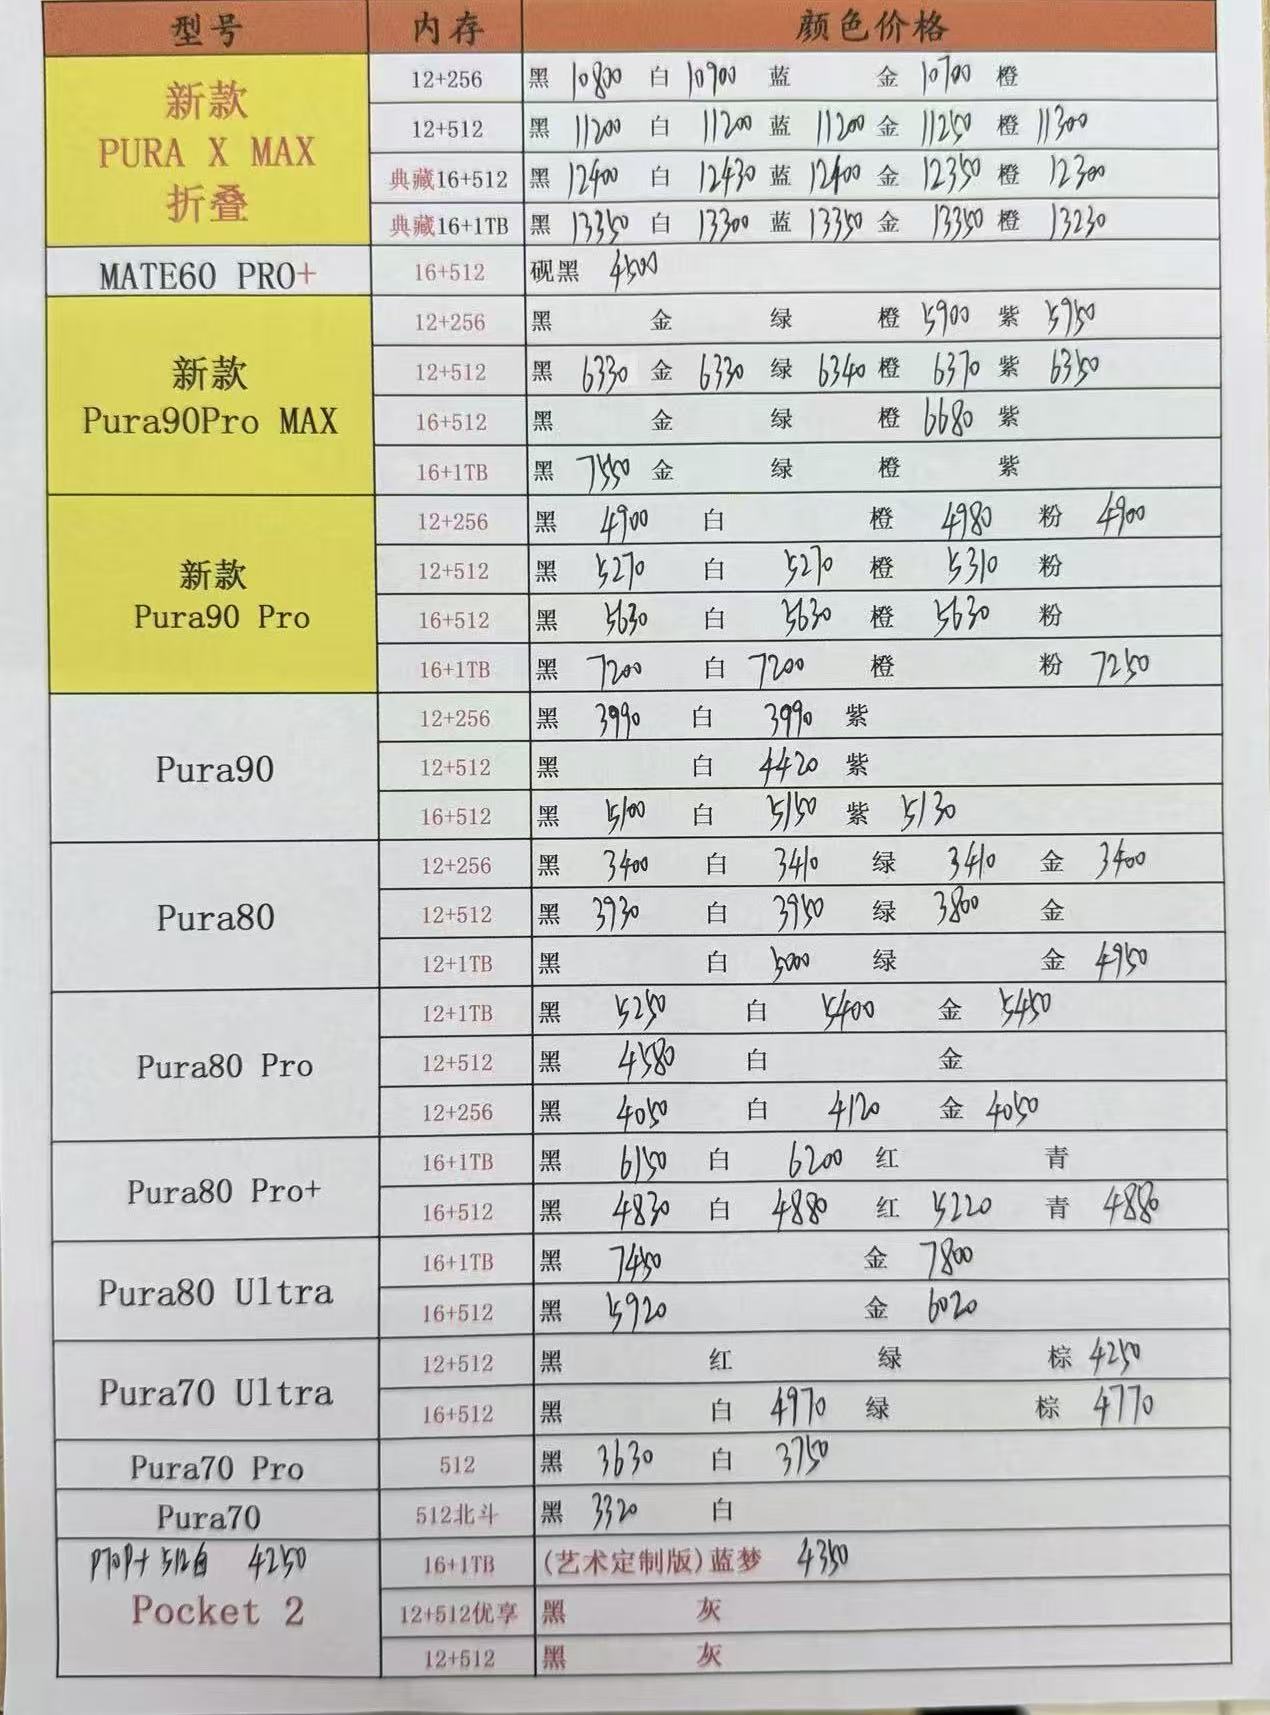 型号 内存 颜色价格
新款 PURA X MAX 折叠
12+256 黑 10800 白 10900 蓝 金 10700 橙
12+512 黑 11200 白 11200 蓝 11200 金 11250 橙 11300
典藏16+512 黑 12400 白 12430 蓝 12400 金 12350 橙 12300
典藏16+1TB 黑 13350 白 13300 蓝 13350 金 13350 橙 13230
MATE60 PRO+ 16+512 砚黑 4500
新款 Pura90Pro MAX
12+256 黑 金 绿 橙 5900 紫 5950
12+512 黑 6330 金 6330 绿 6340 橙 6370 紫 6350
16+512 黑 金 绿 橙 6680 紫
16+1TB 黑 7550 金 绿 橙 紫
新款 Pura90 Pro
12+256 黑 4900 白 橙 4980 粉 4900
12+512 黑 5270 白 5270 橙 5310 粉
16+512 黑 5630 白 5630 橙 5630 粉
16+1TB 黑 7200 白 7200 橙 粉 7250
Pura90
12+256 黑 3990 白 3990 紫
12+512 黑 白 4420 紫
16+512 黑 5100 白 5150 紫 5130
Pura80
12+256 黑 3400 白 3410 绿 3410 金 3400
12+512 黑 3930 白 3950 绿 3800 金
12+1TB 黑 白 5000 绿 金 4950
Pura80 Pro
12+1TB 黑 5250 白 5400 金 5450
12+512 黑 4580 白 金
12+256 黑 4050 白 4120 金 4050
Pura80 Pro+
16+1TB 黑 6150 白 6200 红 青
16+512 黑 4830 白 4880 红 5220 青 4880
Pura80 Ultra
16+1TB 黑 7450 金 7800
16+512 黑 5920 金 6020
Pura70 Ultra
12+512 黑 红 绿 棕 4250
16+512 黑 白 4970 绿 棕 4770
Pura70 Pro 512 黑 3630 白 3750
Pura70 512北斗 黑 3320 白
P70P+ 512白 4250
Pocket 2
16+1TB (艺术定制版)蓝梦 4350
12+512优享 黑 灰
12+512 黑 灰